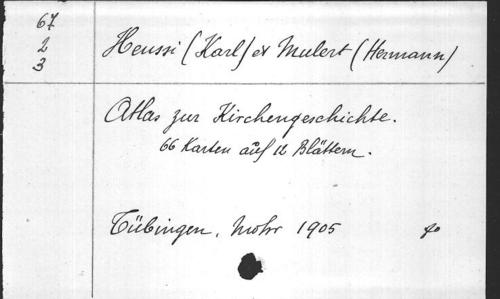 67
2
3
Heussi (Karl) et Mulert (Hermann)
Atlas zur Kirchengeschichte.
66 Karten auf 12 Blättern.
Tübingen, Mohr 1905 fo